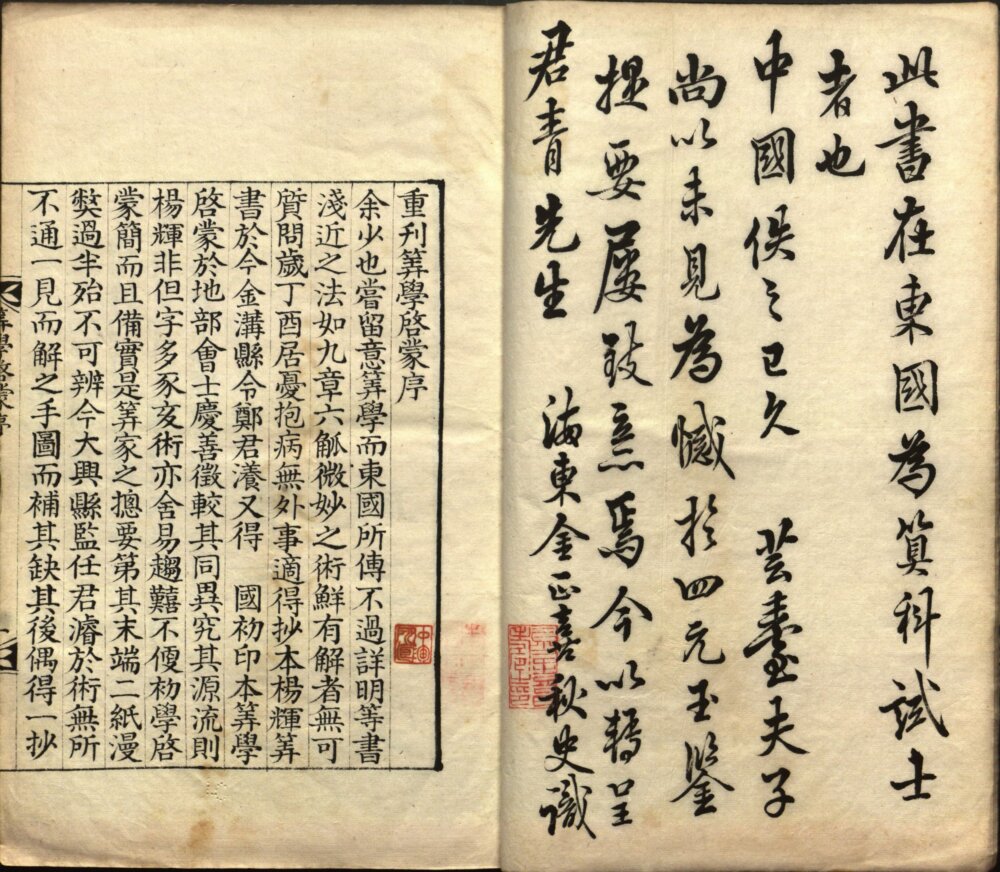 此書在東國為算科試士
者也
中國佚之已久 芸臺夫子
尚以未見為憾於四元玉鑒
提要屢致意焉今以轉呈
君青先生 海東金正喜秋史識
重刋筭學啓蒙序
余少也嘗留意筭學而東國所傳不過詳明等書
淺近之法如九章六觚微妙之術鮮有解者無可
質問歲丁酉居憂抱病無外事適得抄本楊輝筭
書於今金溝縣令鄭君瀁又得 國初印本筭學
啓蒙於地部會士慶善徵較其同異究其源流則
楊輝非但字多豕亥術亦舍易趨囏不便初學啓
蒙簡而且備實是筭家之摠要第其末端二紙漫
獘過半殆不可辨今大興縣監任君濬於術無所
不通一見而解之手圖而補其缺其後偶得一抄
筭學啓蒙序